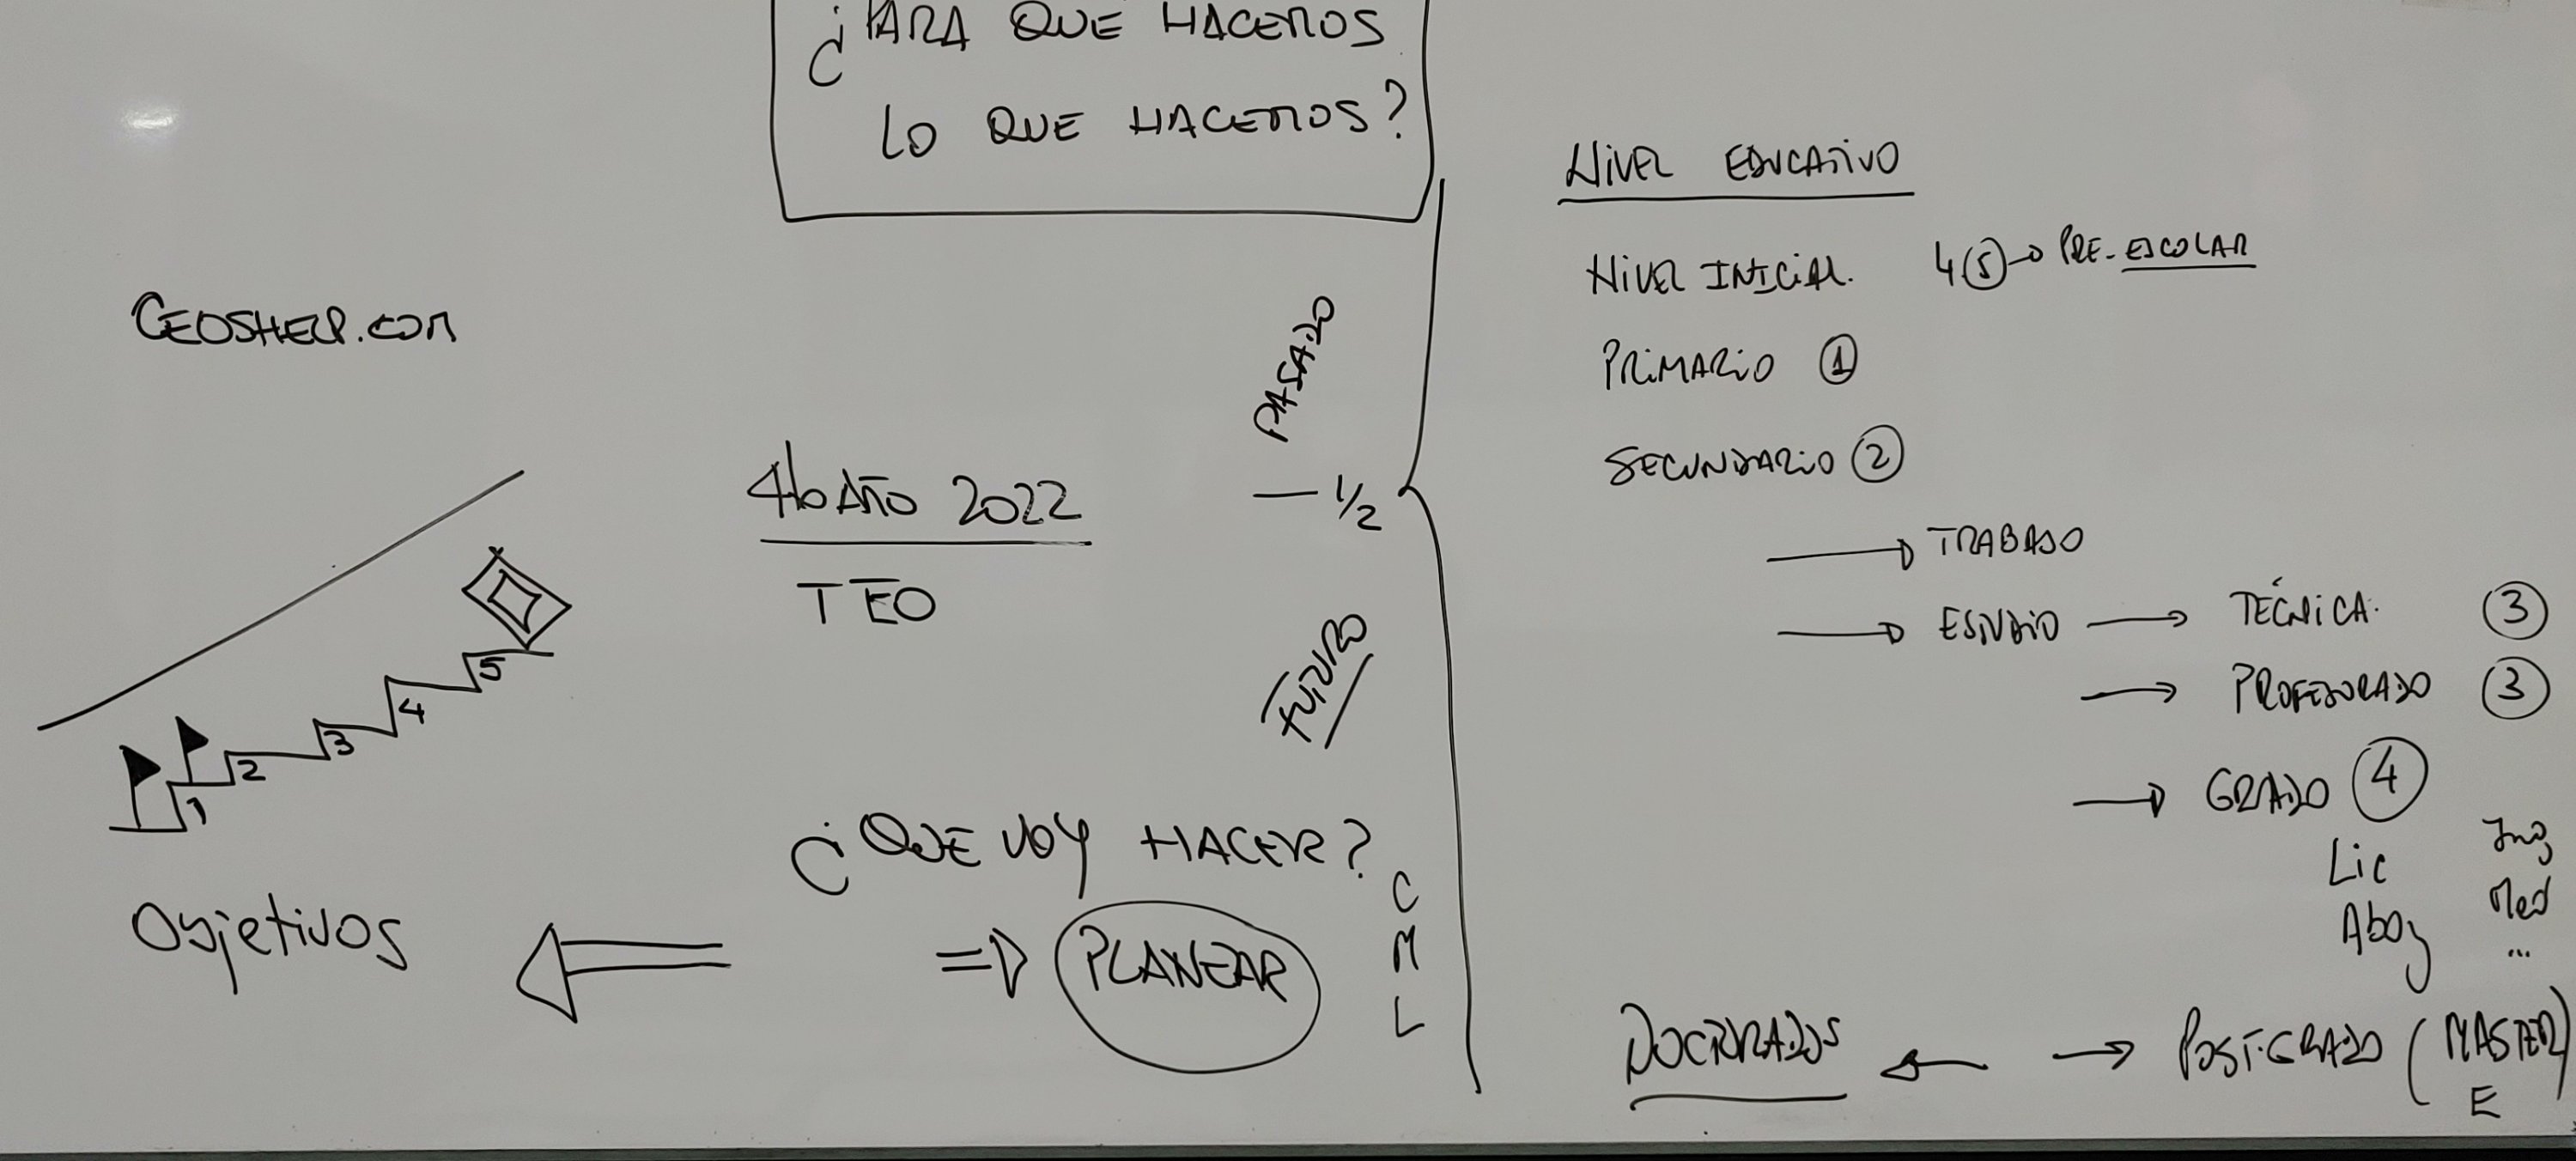 ¿PARA QUE HACEMOS
LO QUE HACEMOS?
CEOSHELP.COM
1
2
3
4
5
Objetivos
4to AÑO 2022
TEO
PASADO
— 1/2
FUTURO
¿QUE VOY HACER?
⇒ PLANEAR
C
M
L
NIVEL EDUCATIVO
NIVEL INICIAL. 4(5)→ PRE-ESCOLAR
PRIMARIO 1
SECUNDARIO 2
→ TRABAJO
→ ESTUDIO → TÉCNICA. 3
→ PROFESORADO 3
→ GRADO 4
Lic Ing
Abog Med
...
DOCTORADOS ← → POST-GRADO (MASTER)
E